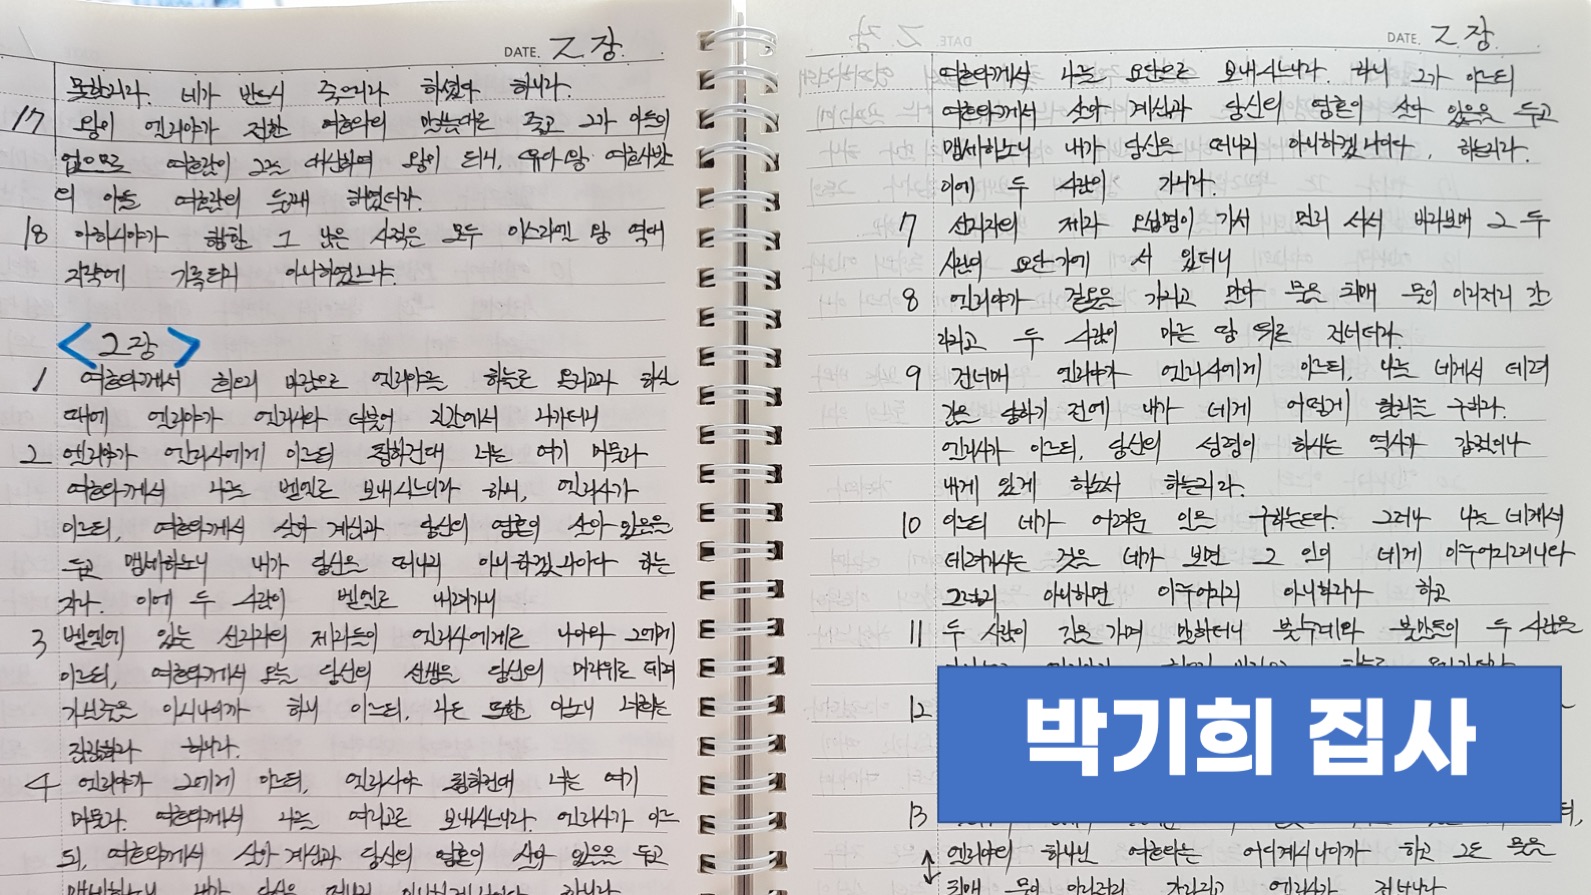 DATE. 2 장.
못할지라. 네가 반드시 죽으리라 하셨다 하니라.
17 왕이 엘리야가 전한 여호와의 말씀대로 죽고 그가 아들이
없으므로 여호람이 그를 대신하여 왕이 되니, 유다 왕 여호사밧
의 아들 여호람의 둘째 해였더라.
18 아하시야가 행한 그 남은 사적은 모두 이스라엘 왕 역대
지략에 기록되지 아니하였느냐.
<2장>
1 여호와께서 회오리 바람으로 엘리야를 하늘로 올리고자 하실
때에 엘리야가 엘리사와 더불어 길갈에서 나가더니
2 엘리야가 엘리사에게 이르되 청하건대 너는 여기 머물라
여호와께서 나를 벧엘로 보내시느니라 하니, 엘리사가
이르되, 여호와께서 살아 계심과 당신의 영혼이 살아 있음을
두고 맹세하노니 내가 당신을 떠나지 아니하겠나이다 하는
지라. 이에 두 사람이 벧엘로 내려가니
3 벧엘에 있는 선지자의 제자들이 엘리사에게로 나아와 그에게
이르되, 여호와께서 오늘 당신의 선생을 당신의 머리위로 데려
가실줄을 아시나이까 하니 이르되, 나도 또한 아노니 너희는
잠잠하라 하니라.
4 엘리야가 그에게 이르되, 엘리사야 청하건대 너는 여기
머물라. 여호와께서 나를 여리고로 보내시느니라. 엘리사가 이르
되, 여호와께서 살아 계심과 당신의 영혼이 살아 있음을 두고
맹세하노니 내가 당신을 떠나지 아니하겠나이다 하니라
DATE. 2 장.
여호와께서 나를 요단으로 보내시느니라. 하니 그가 이르되
여호와께서 살아 계심과 당신의 영혼이 살아 있음을 두고
맹세하노니 내가 당신을 떠나지 아니하겠나이다. 하는지라.
이에 두 사람이 가니라.
7 선지자의 제자 오십명이 가서 멀리 서서 바라보매 그 두
사람이 요단가에 서 있더니
8 엘리야가 겉옷을 가지고 말아 물을 치매 물이 이리저리 갈
라지고 두 사람이 마른 땅 위로 건너더라.
9 건너매 엘리야가 엘리사에게 이르되, 나를 네게서 데려
감을 당하기 전에 내가 네게 어떻게 할지를 구하라.
엘리사가 이르되, 당신의 성령이 하시는 역사가 갑절이나
내게 있게 하소서 하는지라.
10 이르되 네가 어려운 일을 구하는도다. 그러나 나를 네게서
데려가시는 것을 네가 보면 그 일이 네게 이루어지려니와
그렇지 아니하면 이루어지지 아니하리라 하고
11 두 사람이 길을 가며 말하더니 불수레와 불말들이 두 사람을
12
박기희 집사
13
엘리야의 하나님 여호와는 어디계시니이까 하고 그도 물을
치매 물이 이리저리 갈라지고 엘리사가 건너니라